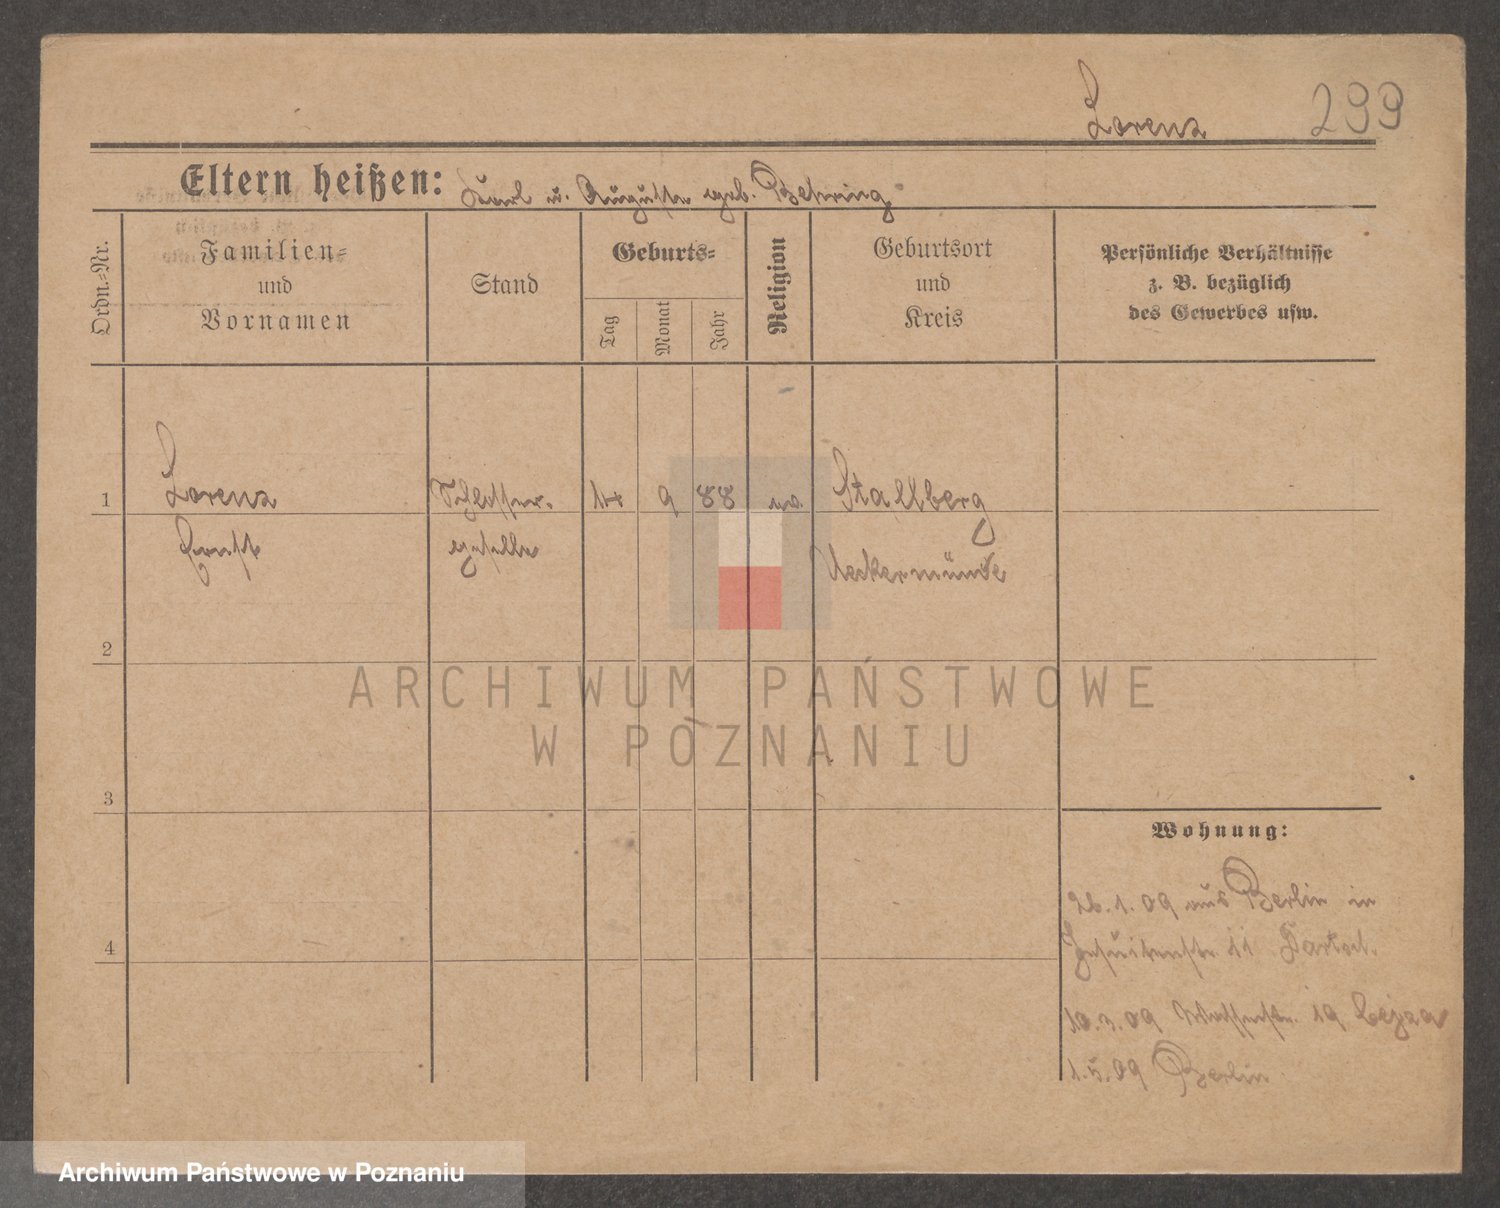 Lorenz 299
Eltern heißen: Karl u. Auguste geb. Behring
Ordn.-Nr.
Familien-
und
Vornamen
Stand
Geburts-
Tag
Monat
Jahr
Religion
Geburtsort
und
Kreis
Persönliche Verhältnisse
z. B. bezüglich
des Gewerbes usw.
1 Lorenz Schlosser- 14 9 88 ev. Stallberg
Ernst geselle Ueckermünde
2
3
4
Wohnung:
26.1.09 aus Berlin in
Jesuitenstr. 11
10.3.09 19
1.5.09 Berlin
ARCHIWUM PAŃSTWOWE
W POZNANIU
Archiwum Państwowe w Poznaniu